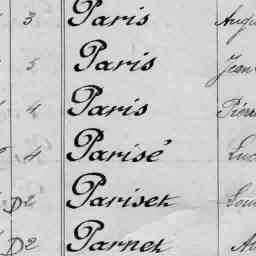 3 Paris
5 Paris Jean
4 Paris Pierre
4 Parisé
D2 Pariset
D2 Parnet